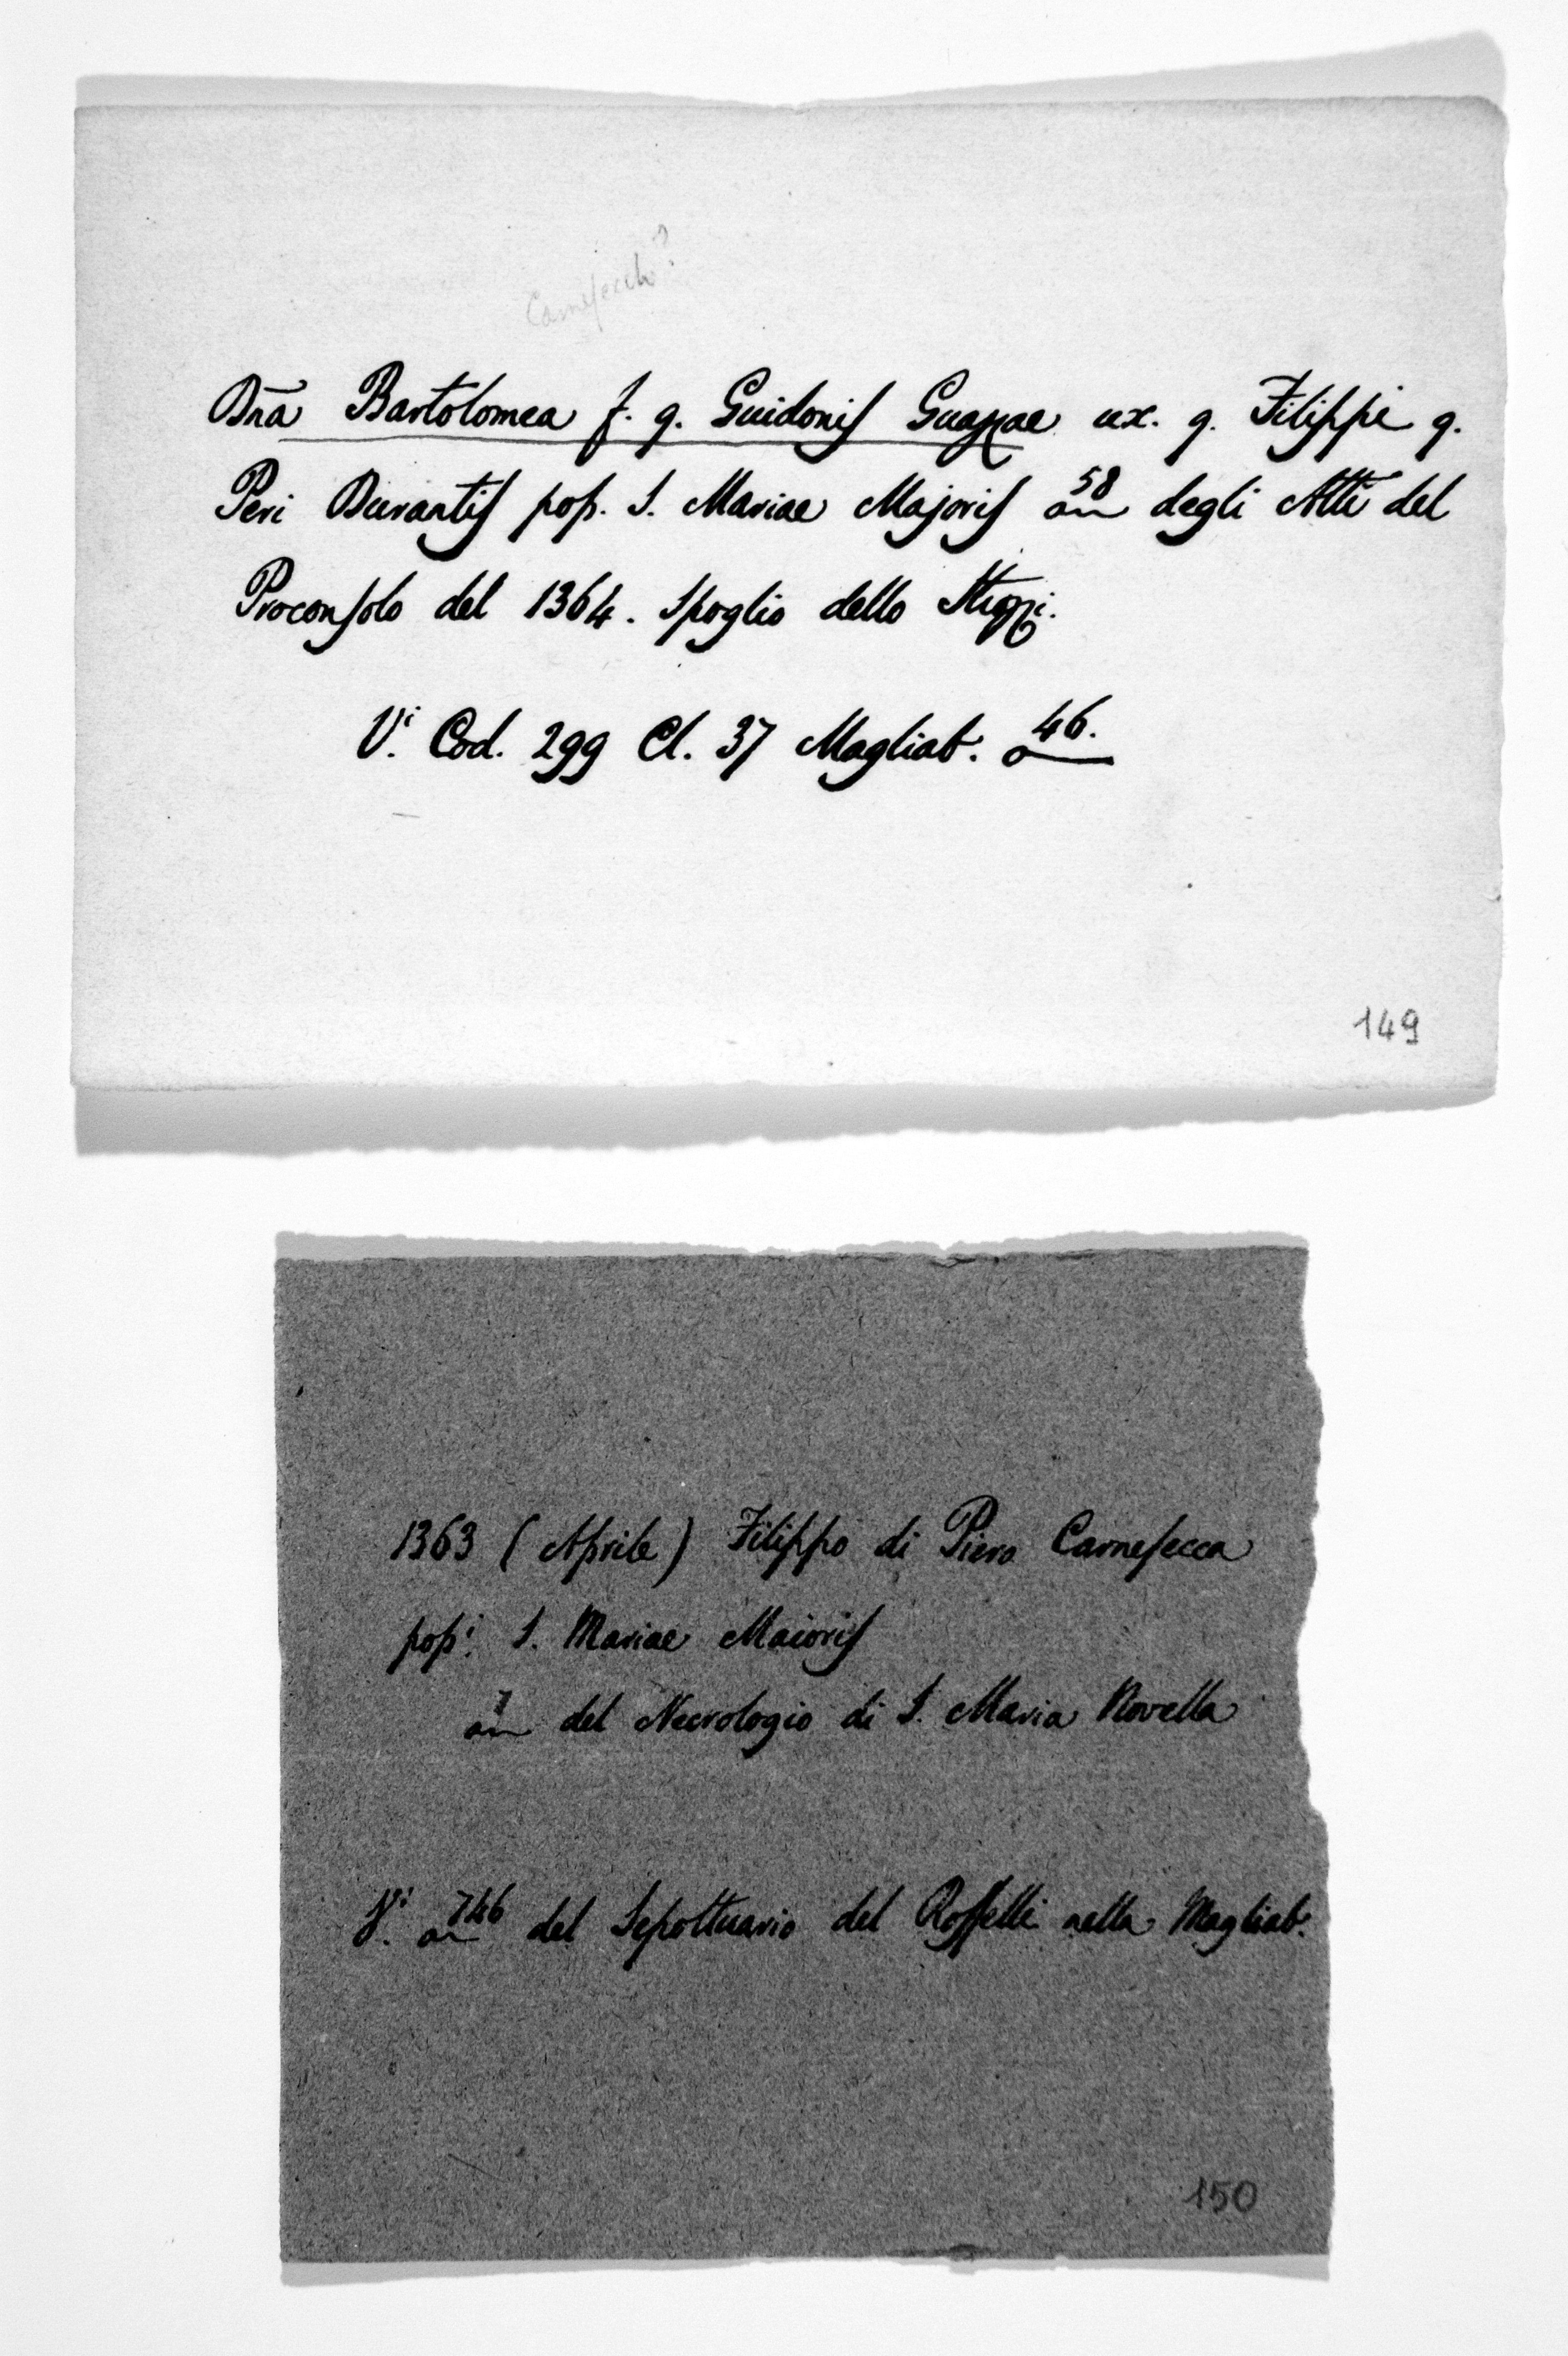 Carnesecchi?
Dña Bartolomea f. q. Guidonis Guazzae ux. q. Filippi q.
Peri Durantis pop. S. Mariae Majoris a 58 degli Atti del
Proconsolo del 1364. Spoglio dello Strozzi.
V.i Cod. 299 Cl. 37 Magliab. a 46.
149
1363 (Aprile) Filippo di Piero Carnesecca
pop.i S. Mariae Maioris
a 7 del Necrologio di S. Maria Novella
V.i a 746 del Sepoltuario del Rosselli nella Magliab.
150